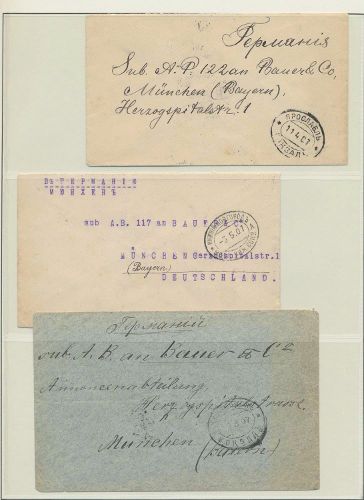 Германія
Sub. A.P. 122 an Bauer & Co,
München (Bayern),
Herzogspitalstr. 1
ЯРОСЛАВЛЬ
11.4.07
ВОКЗАЛ
ВЪ ГЕРМАНІЮ
МЮНХЕНЪ
sub A.B. 117 an BAUER & Co
-5.5.07
MÜNCHEN
(Bayern)
DEUTSCHLAND.
Германій
sub. A. B. an Bauer & Co
Annoncenabteilung,
Herzogspitalstrasse,
München